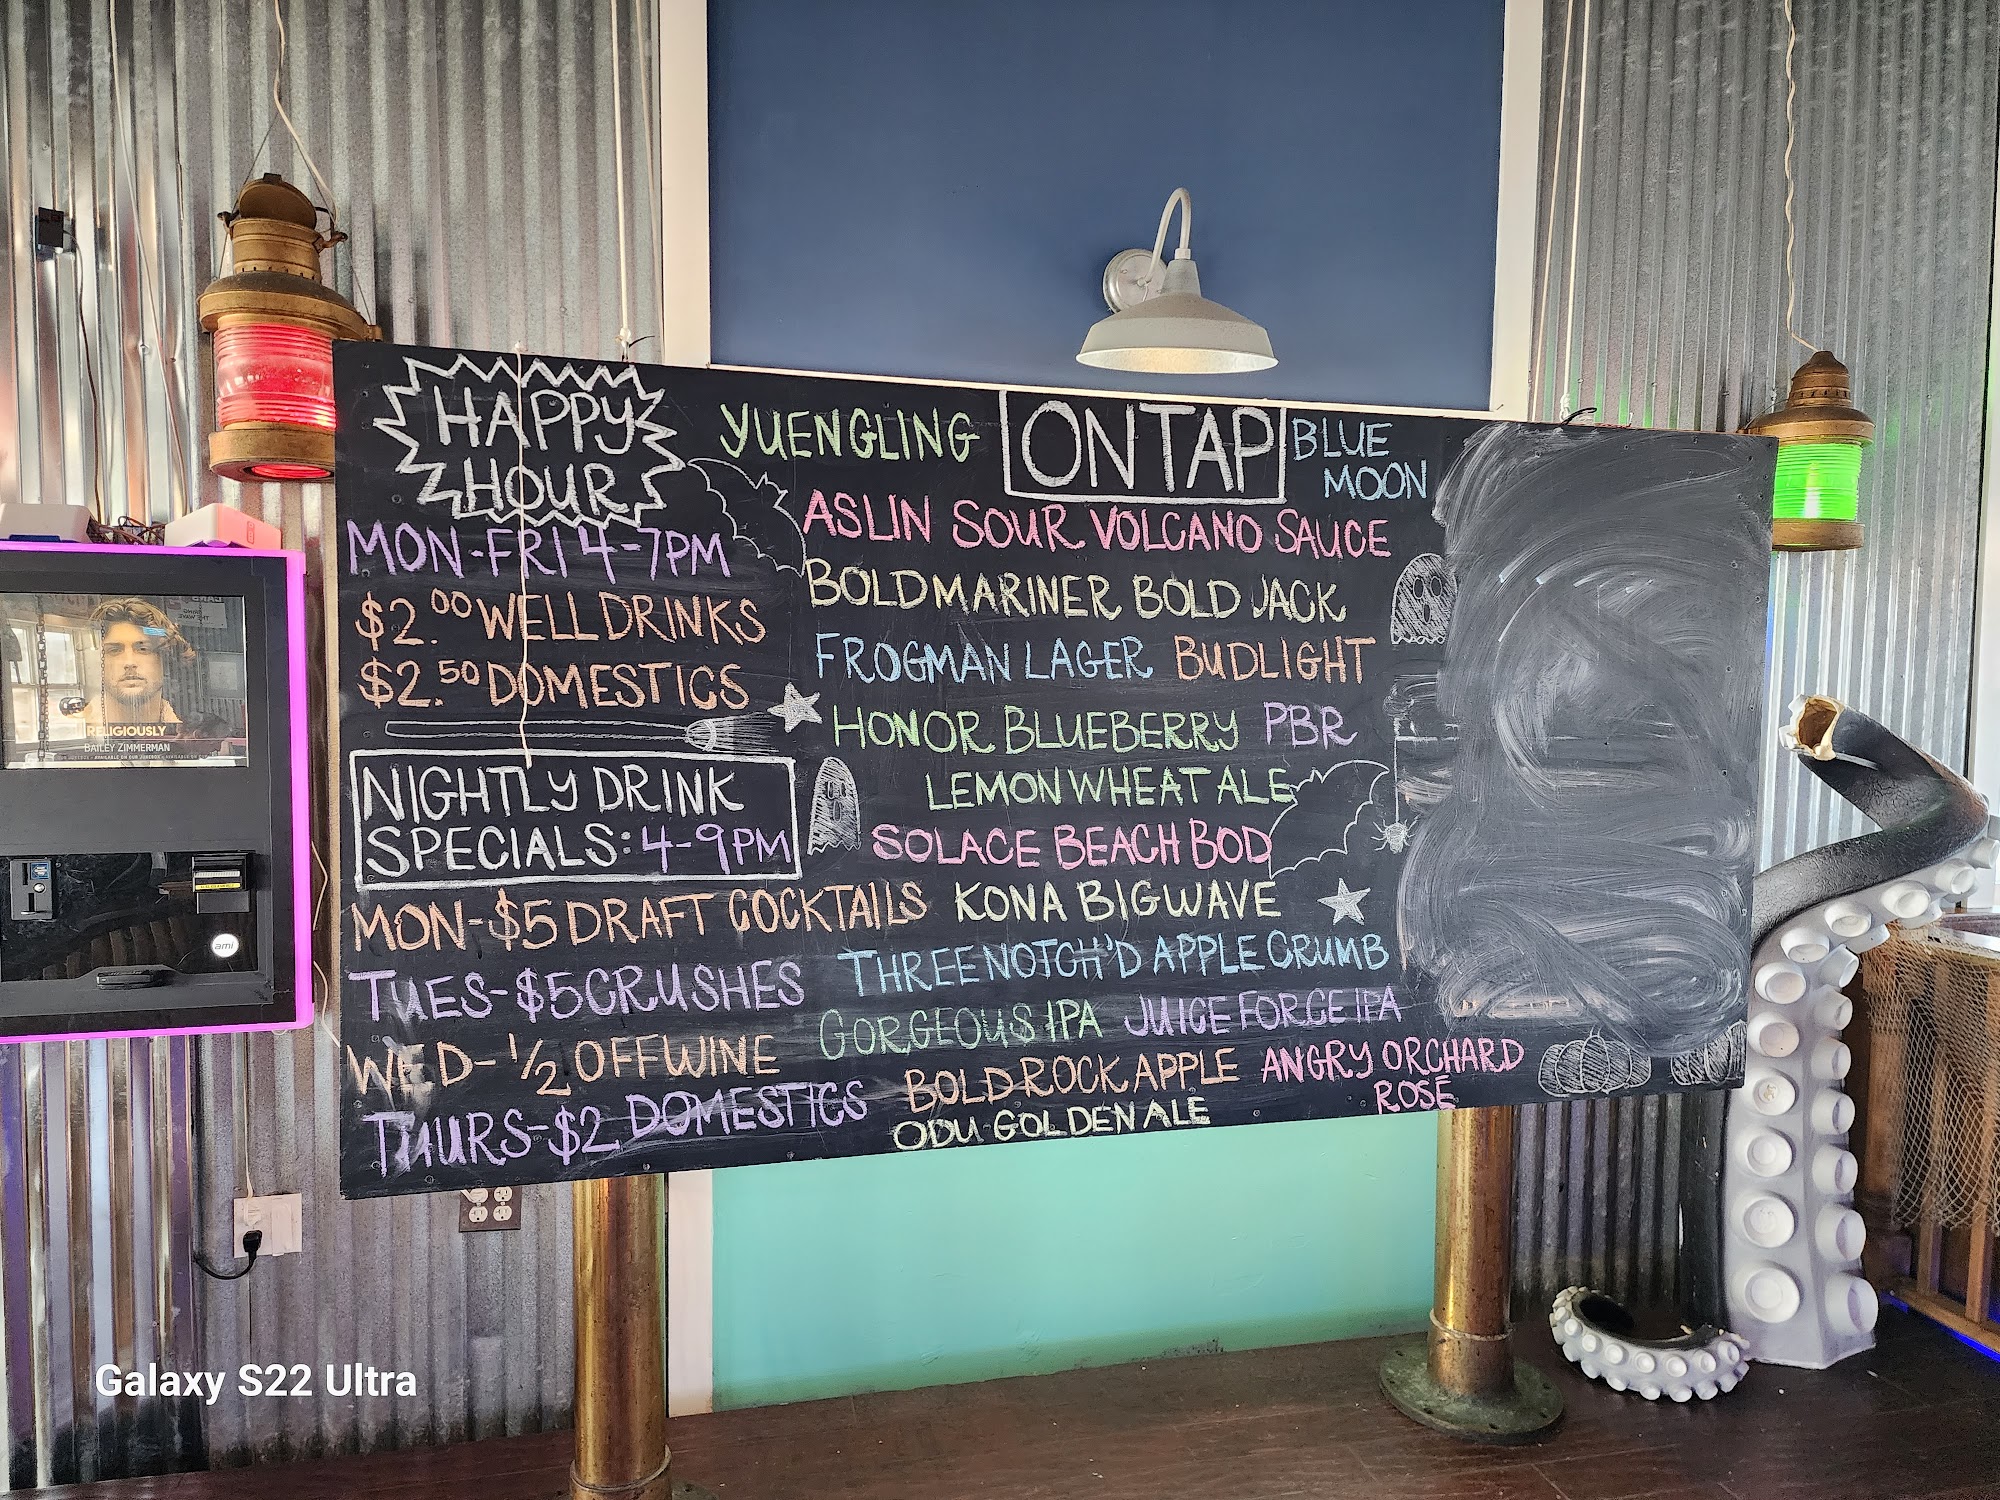 HAPPY
HOUR
MON-FRI 4-7PM
$2.00 WELL DRINKS
$2.50 DOMESTICS
NIGHTLY DRINK
SPECIALS: 4-9PM
MON-$5 DRAFT COCKTAILS
TUES-$5 CRUSHES
WED-1/2 OFF WINE
THURS-$2 DOMESTICS
YUENGLING
ON TAP
BLUE
MOON
ASLIN SOUR VOLCANO SAUCE
BOLD MARINER BOLD JACK
FROGMAN LAGER BUDLIGHT
HONOR BLUEBERRY PBR
LEMON WHEAT ALE
SOLACE BEACH BOD
KONA BIG WAVE
THREE NOTCH'D APPLE CRUMB
GORGEOUS IPA JUICE FORCE IPA
BOLD ROCK APPLE ANGRY ORCHARD
ROSÉ
ODU GOLDEN ALE
RELIGIOUSLY
BAILEY ZIMMERMAN
ami
Galaxy S22 Ultra